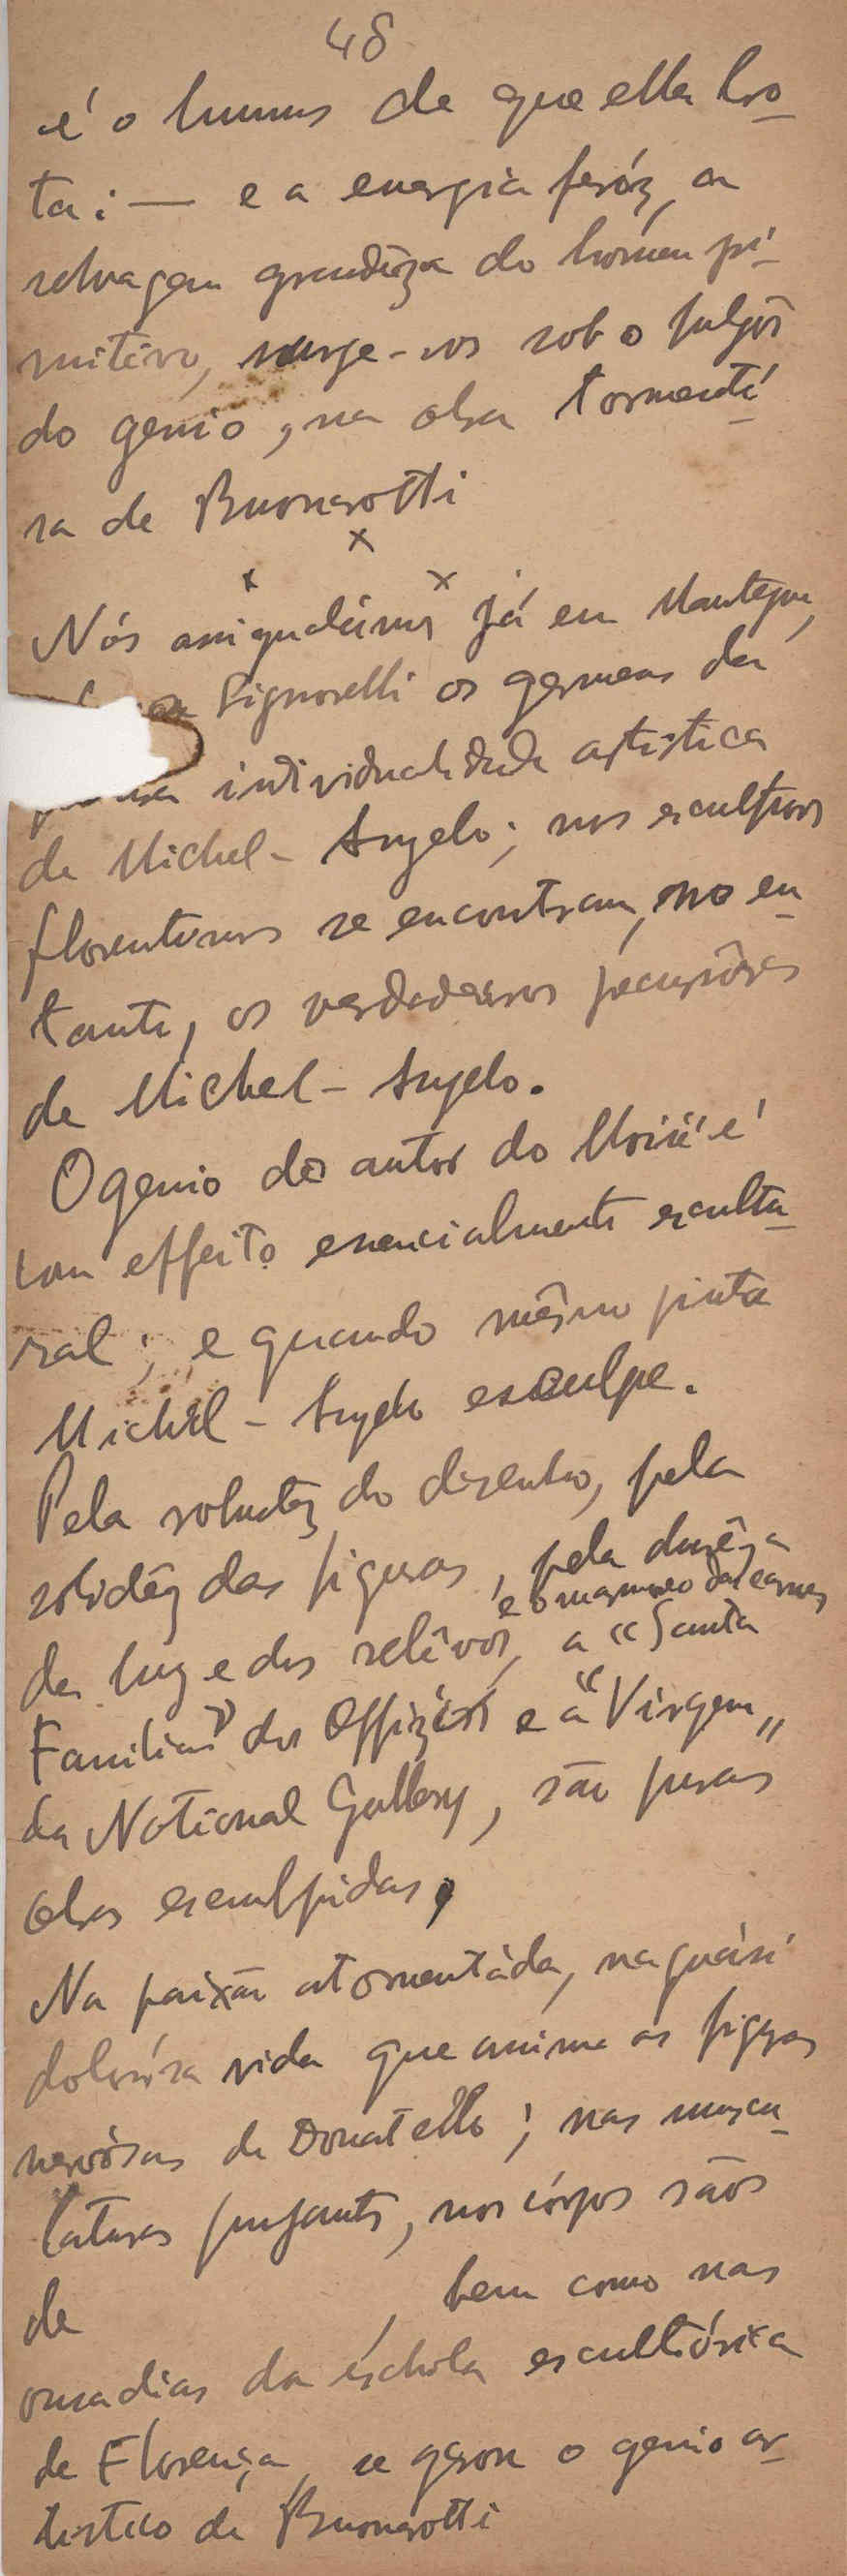 48
é o humus de que ella bro-
ta: — e a energia feróz, a
selvagem grandêza do hómem pri-
mitivo, surge-vos sob o fulgôr
do genio, na obra tormentó-
sa de Buonarotti
x
x x
Nós assignalámos já em Mantegna,
Signorelli os germens da
individualidade artistica
de Michel-Angelo; nos escultores
florentinos se encontram, no en-
tanto, os verdadeiros precursôres
de Michel-Angelo.
O genio do autor do Moisé é
com effeito essencialmente escultu-
ral; e quando mêsmo pinta
Michel-Angelo esculpe.
Pela do dezenho, pela
solidêz das figuras, pela durêza
e o marmoreo das carnes
da luz e dos relêvos, a "Santa
Familia" dos Offizios e a "Virgem"
da National Gallery, são puras
obras esculpidas,
Na paixão atormentáda, na quási
dolorósa vida que anima as figuras
nervósas de Donatello; nas muscu-
laturas pujantes, nos córpos sãos
de , bem como nas
ousadias da eschola escultórica
de Florença, se gerou o genio ar-
tistico de Buonarotti